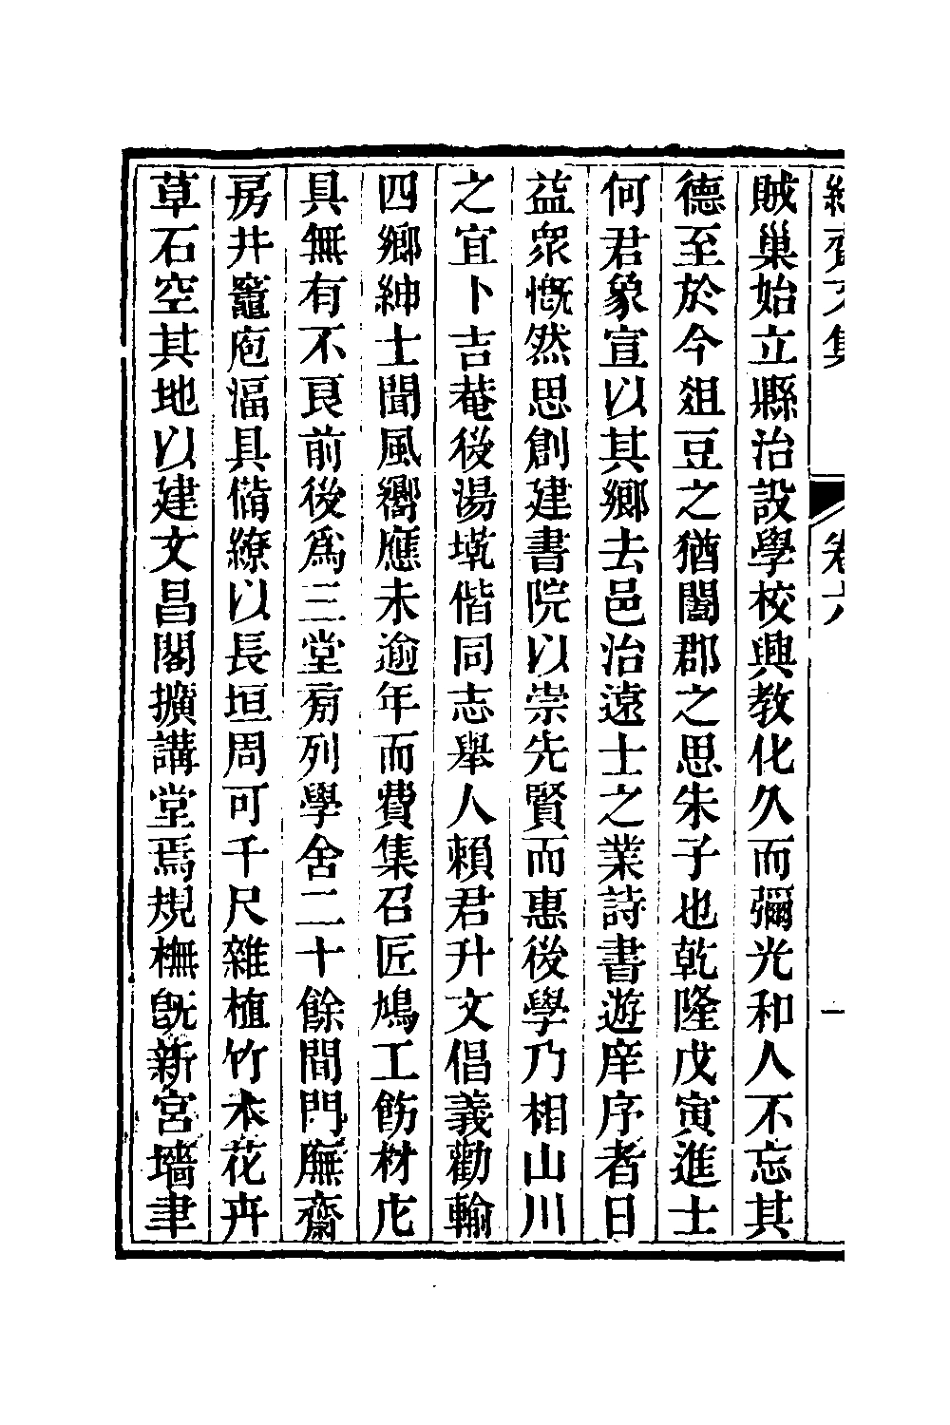 賊巢始立縣治設學校興教化久而彌光和人不忘其
德至於今俎豆之猶闔郡之思朱子也乾隆戊寅進士
何君象宣以其鄉去邑治遠士之業詩書遊庠序者日
益衆慨然思創建書院以崇先賢而惠後學乃相山川
之宜卜吉菴後湯坑偕同志舉人賴君升文倡義勸輸
四鄉紳士聞風嚮應未逾年而費集召匠鳩工飭材庀
具無有不良前後爲三堂旁列學舍二十餘間門廡齋
房井竈庖湢具備繚以長垣周可千尺雜植竹木花卉
草石空其地以建文昌閣擴講堂焉規橅旣新宮墻聿